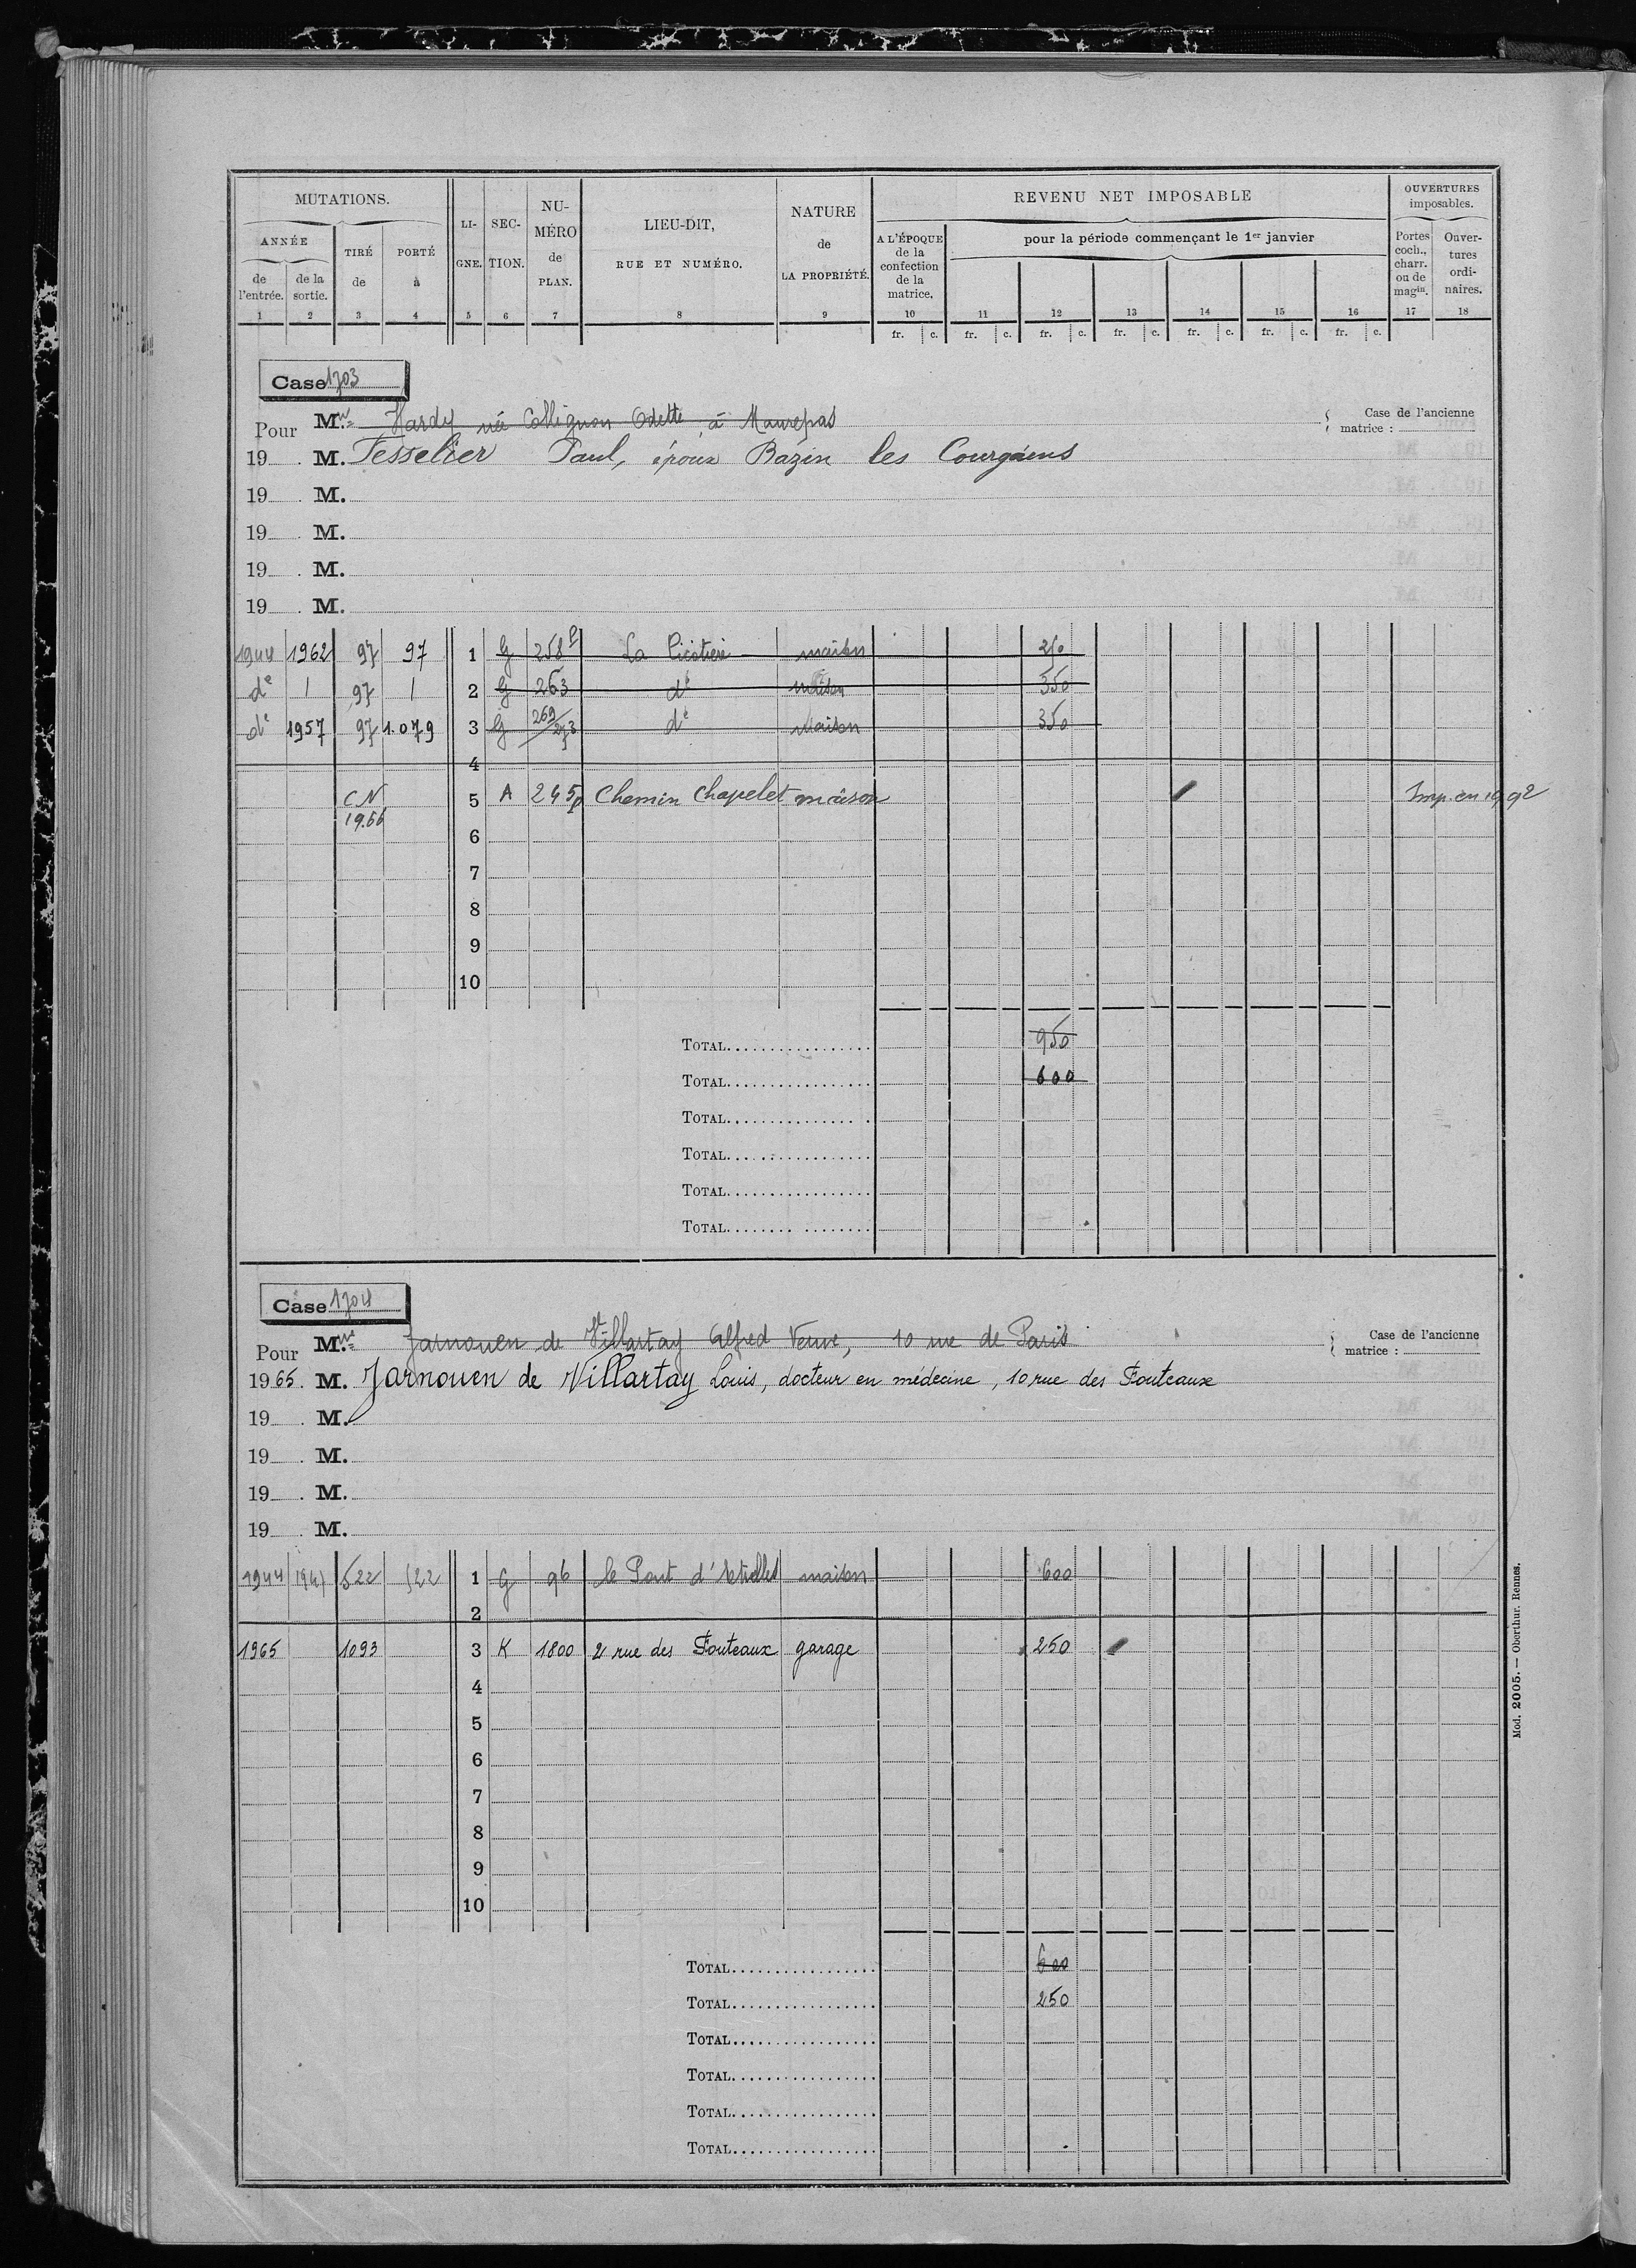 MUTATIONS.
ANNÉE
de l'entrée. de la sortie. TIRÉ de PORTÉ à
LI-GNE. SEC-TION. NU-MÉRO de PLAN.
LIEU-DIT, RUE ET NUMÉRO.
NATURE de LA PROPRIÉTÉ.
REVENU NET IMPOSABLE
A L'ÉPOQUE de la confection de la matrice.
pour la période commençant le 1er janvier
OUVERTURES imposables.
Portes coch., charr. ou de magin. Ouver-tures ordi-naires.
1 2 3 4 5 6 7 8 9 10 11 12 13 14 15 16 17 18
fr. c. fr. c. fr. c. fr. c. fr. c. fr. c. fr. c.
Case 1703
Pour Mme Hardy née Collignon Odette, à Maurepas
Case de l'ancienne matrice :
19 . M. Tesselier Paul, époux Bazin les Courgains
19 . M.
19 . M.
19 . M.
19 . M.
1944 1962 97 97 1 G 258p La maison
de 97 2 G 263 de maison 350
de 1957 97 1.079 3 G 269/273 de Maison 350
4
CN 1966 5 A 245p Chemin Chapelet maison Imp. en 1992
6
7
8
9
10
TOTAL 950
TOTAL 600
TOTAL
TOTAL
TOTAL
TOTAL
Case 1704
Pour Mme Jarnouen de Villartay Alfred Veuve, 10 rue de Paris
Case de l'ancienne matrice :
1965. M. Jarnouen de Villartay Louis, docteur en médecine, 10 rue des Fouteaux
19 . M.
19 . M.
19 . M.
19 . M.
1944 522 522 1 G 96 le Pont d' maison 600
2
1965 1093 3 K 1800 2 rue des Fouteaux garage 250
4
5
6
7
8
9
10
TOTAL 600
TOTAL 250
TOTAL
TOTAL
TOTAL
TOTAL
Mod. 2005. — Oberthur. Rennes.